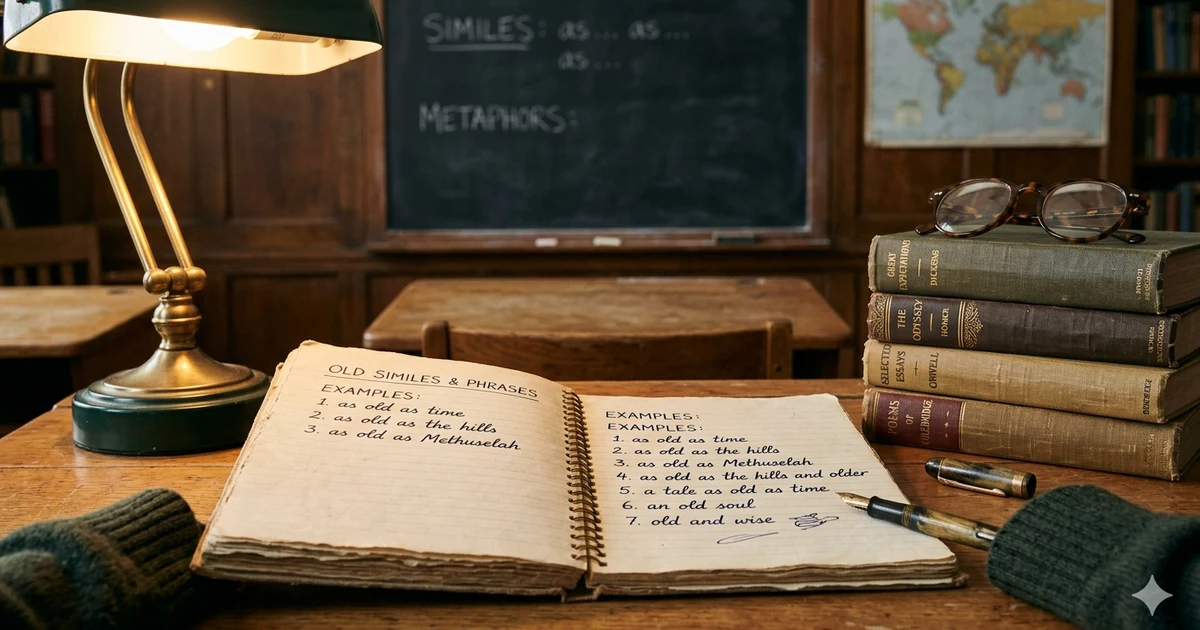 SIMILES: as... as...
as...
METAPHORS:
OLD SIMILES & PHRASES
EXAMPLES:
1. as old as time
2. as old as the hills
3. as old as Methuselah
EXAMPLES:
EXAMPLES:
1. as old as time
2. as old as the hills
3. as old as Methuselah
4. as old as the hills and older
5. a tale as old as time
6. an old soul
7. old and wise
GREAT
EXPECTATIONS
DICKENS
THE
ODYSSEY
HOMER
SELECTED
ESSAYS
ORWELL
POEMS
OF